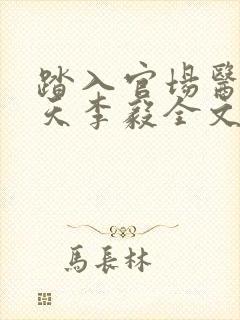 踏入官場醫
天李毅全文
馬長林